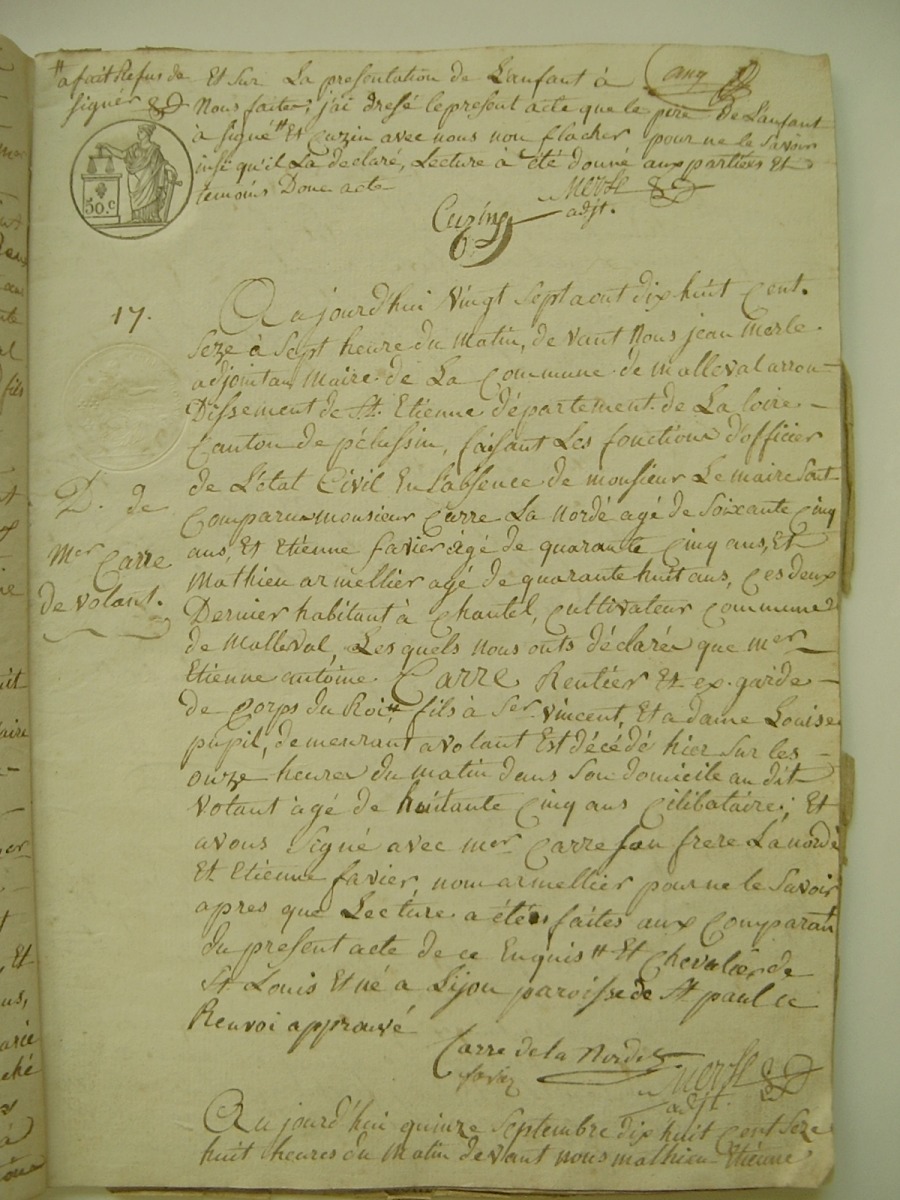 # a fait Refus de
signer
Et Sur La presentation de L'anfant à
Nous faites; j'ai dressé le present acte que le père De L'anfant
à signé # Et Cuzin avec nous non flacher pour ne le Savoir
insi qu'il La déclaré, Lecture à été donné aux parties Et
temoins Donc acte
Merle
adjt.
Cuzin
50.c
17.
Aujourd'hui Vingt Sept aout dix huit Cent.
Seze à Sept heure du Matin, de vant Nous jean Merle
adjoint au Maire de La Commune de malleval arron-
Dissement de St. Etienne département de La loire-
Canton de pélussin, faisant Les fonctions d'officier
de L'état Civil En L'absence de monsieur Le maire Sont
Comparus monsieur Carre La Nordé agé de Soixante Cinq
ans, Et Etienne favier agé de quarante Cinq ans, Et
Mathieu armellier agé de quarante huit ans, Ces deux
Dernier habitant à Chantel, Cultivateur Commune
de Malleval, Les quels nous onts déclarée que mer
Etienne antoine Carre Rentier Et ex. garde-
de Corps du Roi #, fils à Ser Vincent, Et a dame Louise
pupil, demeurant a volant Est décédé hier Sur les-
onze heures du matin dans Son domicile au dit-
Volant agé de huitante Cinq ans Cilibataire; Et
avons Signé avec mer Carre son frere La nordé
Et Etienne favier, non armellier pour ne le Savoir
apres que Lecture a étés faites aux Comparant
du present acte de ce Enquis # Et Chevalier de
St Louis Et né a Lijon paroisse de St paul Ce
Renvoi approuvé
D. de
Mer Carre
de volant.
Carre de la Nordé
favier
Merle
adjt.
Aujourd'hui quinze Septembre dix huit Cent Seze
huit heures du Matin devant nous mathieu Etienne